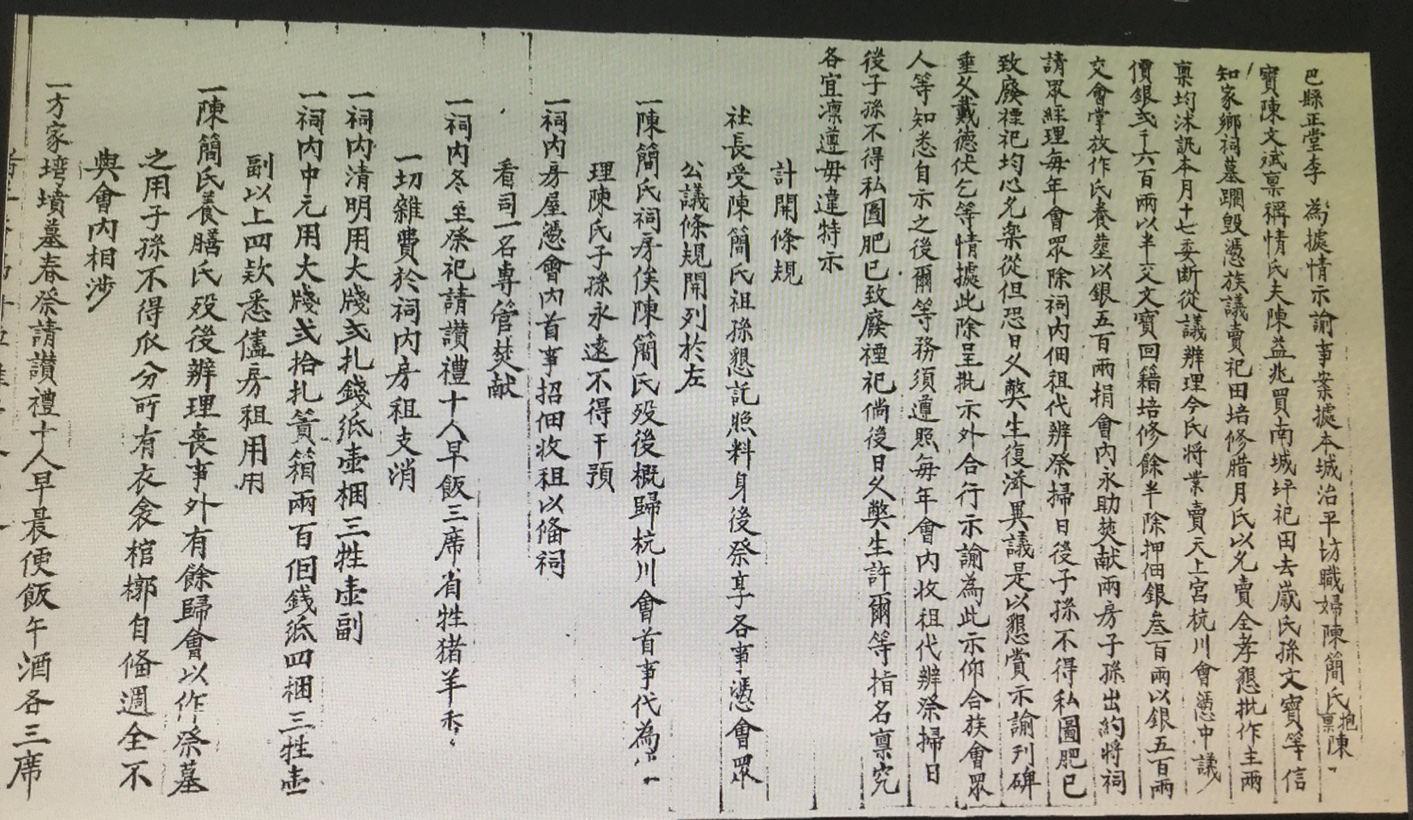 巴縣正堂李　為據情示諭事案據本城治平坊職婦陳簡氏抱稟陳
寶陳文斌稟稱情氏夫陳益兆買南城坪祀田去歲氏孫文寶等信
知家鄉祠墓躙毀憑族議賣祀田培修腊月氏以名賣全孝懇批作主兩
稟均沐訊本月十七委斷從議辦理今氏將業賣天上宮杭川會憑中議
價銀弍千六百兩以半交文寶回籍培修餘半除押佃銀叁百兩以銀五百兩
交會掌放作氏養葬以銀五百兩捐會內永助獎献兩房子孫出約將祠
請眾經理每年會眾除祠內佃租代辦祭掃日後子孫不得私圖肥已
致廢禋祀均心允楽從但恐日乂獘生復滋異議是以懇賞示諭刋碑
垂乂戴德伏乞等情據此除呈批示外合行示諭為此示仰合族會眾
人等知悉自示之後爾等務須遵照每年會內收租代辦祭掃日
後子孫不得私圖肥已致廢禋祀倘後日乂獘生許爾等指名稟究
各宜凛遵毋違特示
計開條規
社長受陳簡氏祖孫懇託照料身後祭享各事憑會眾
公議條規開列於左
一陳簡氏祠房俟陳簡氏殁後概歸杭川會首事代為
理陳氏子孫永遠不得干預
一祠内房屋憑會内首事招佃收租以俻祠
看司一名專管獎献
一祠内冬至祭祀請讃禮十人早飯三席省牲猪羊
一切雜費於祠内房租支消
一祠内清明用大牋弍扎錢纸壷梱三牲壷副
一祠内中元用大牋弍拾扎篢箱兩百佪錢纸四梱三牲壷
副以上四欵悉儘房租用用
一陳簡氏養膳氏殁後辦理喪事外有餘歸會以作祭墓
之用子孫不得瓜分所有衣衾棺槨自俻週全不
與會内相涉
一方家塆墳墓春祭請讃禮十人早晨便飯午酒各三席